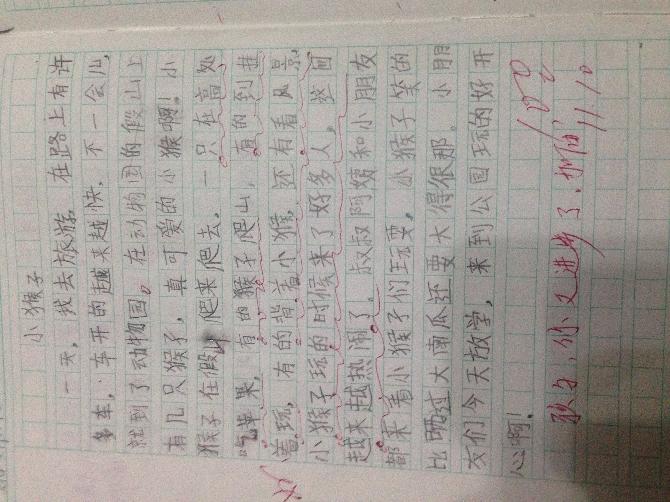 小猴子
一天，我去旅游。在路上有许
多车，车开的越来越快，不一会儿，
就到了动物园。在动物园的假山上
有几只猴子，真可爱的小猴啊！小
猴子在假山爬来爬去，一只在高处
吃苹果，有的猴子爬山，有的到挂
着玩，有的背着小猴，还有看风景，
小猴子玩的时候来了好多人，整间
越来越热闹了。叔叔阿姨和小朋友
都来看小猴子们玩耍，小猴子笑的
比哂过大南瓜还要大得很那。小朋
友们今天放学，来到公园玩的好开
心啊！
你又进步了，加油！
11.10